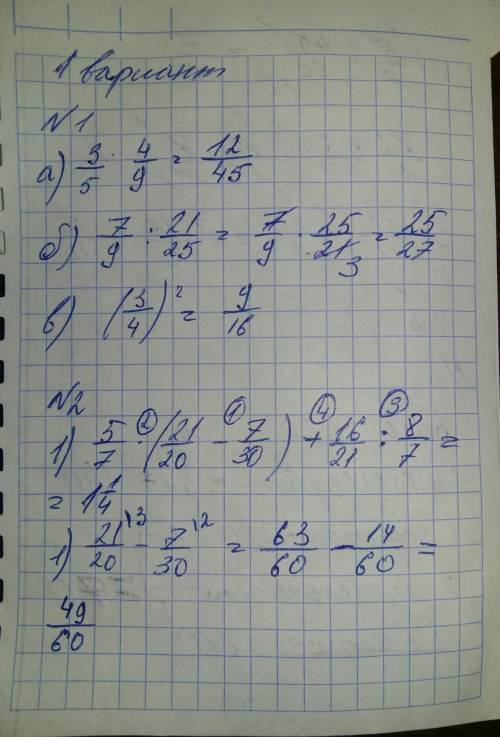 1 вариант
№1
а) 3/5 · 4/9 = 12/45
б) 7/9 : 21/25 = 7/9 · 25/21 3 = 25/27
в) (3/4)² = 9/16
№2
1) 5/7 ·② (21/20 -① 7/30) +④ 16/21 :③ 8/7 =
= 1 1/4
1) 21/20 \3 - 7/30 \2 = 63/60 - 14/60 =
49/60